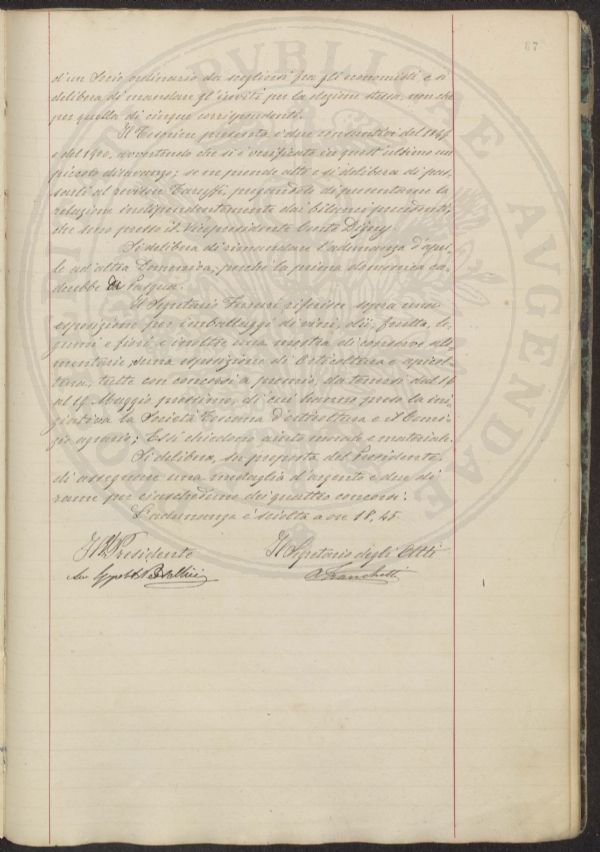 87
d'un Socio ordinario da scegliersi fra gli economisti e si
delibera di mandare gl'inviti per la elezione stessa, non che
per quella di cinque corrispondenti.
Il Tesoriere presenta i due consuntivi del 1899
e del 1900, avvertendo che si è verificato in quest'ultimo un
piccolo disavanzo; se ne prende atto e si delibera di pas-
sarli al revisore pregandolo di presentarne la
relazione indipendentemente dai bilanci precedenti,
che sono presso il Vicepresidente Conte Digny.
Si delibera di rimandare l'adunanza d'apri-
le ad altra Domenica, perchè la prima domenica ca-
drebbe di Pasqua.
Il Segretario riferisce sopra una
esposizione per imballaggi di vini, olii, frutta, le-
gumi e fiori, e inoltre una mostra di conserve ali-
mentarie, e una esposizione di Orticoltura e apicol-
tura, tutte con concorsi a premio, da tenersi dal 16
al 19 Maggio prossimo, di cui hanno preso la ini-
ziativa la Società Toscana d'orticoltura e il Comi-
zio agrario; Essi chiedono aiuto morale e materiale.
Si delibera, su proposta del Presidente,
di assegnare una medaglia d'argento e due di
rame per ciascheduno dei quattro concorsi.
L'adunanza è sciolta a ore 18,45.
Il Presidente Il Segretario degli Atti
A. Franchetti
PVBLICAE AVGENDAE